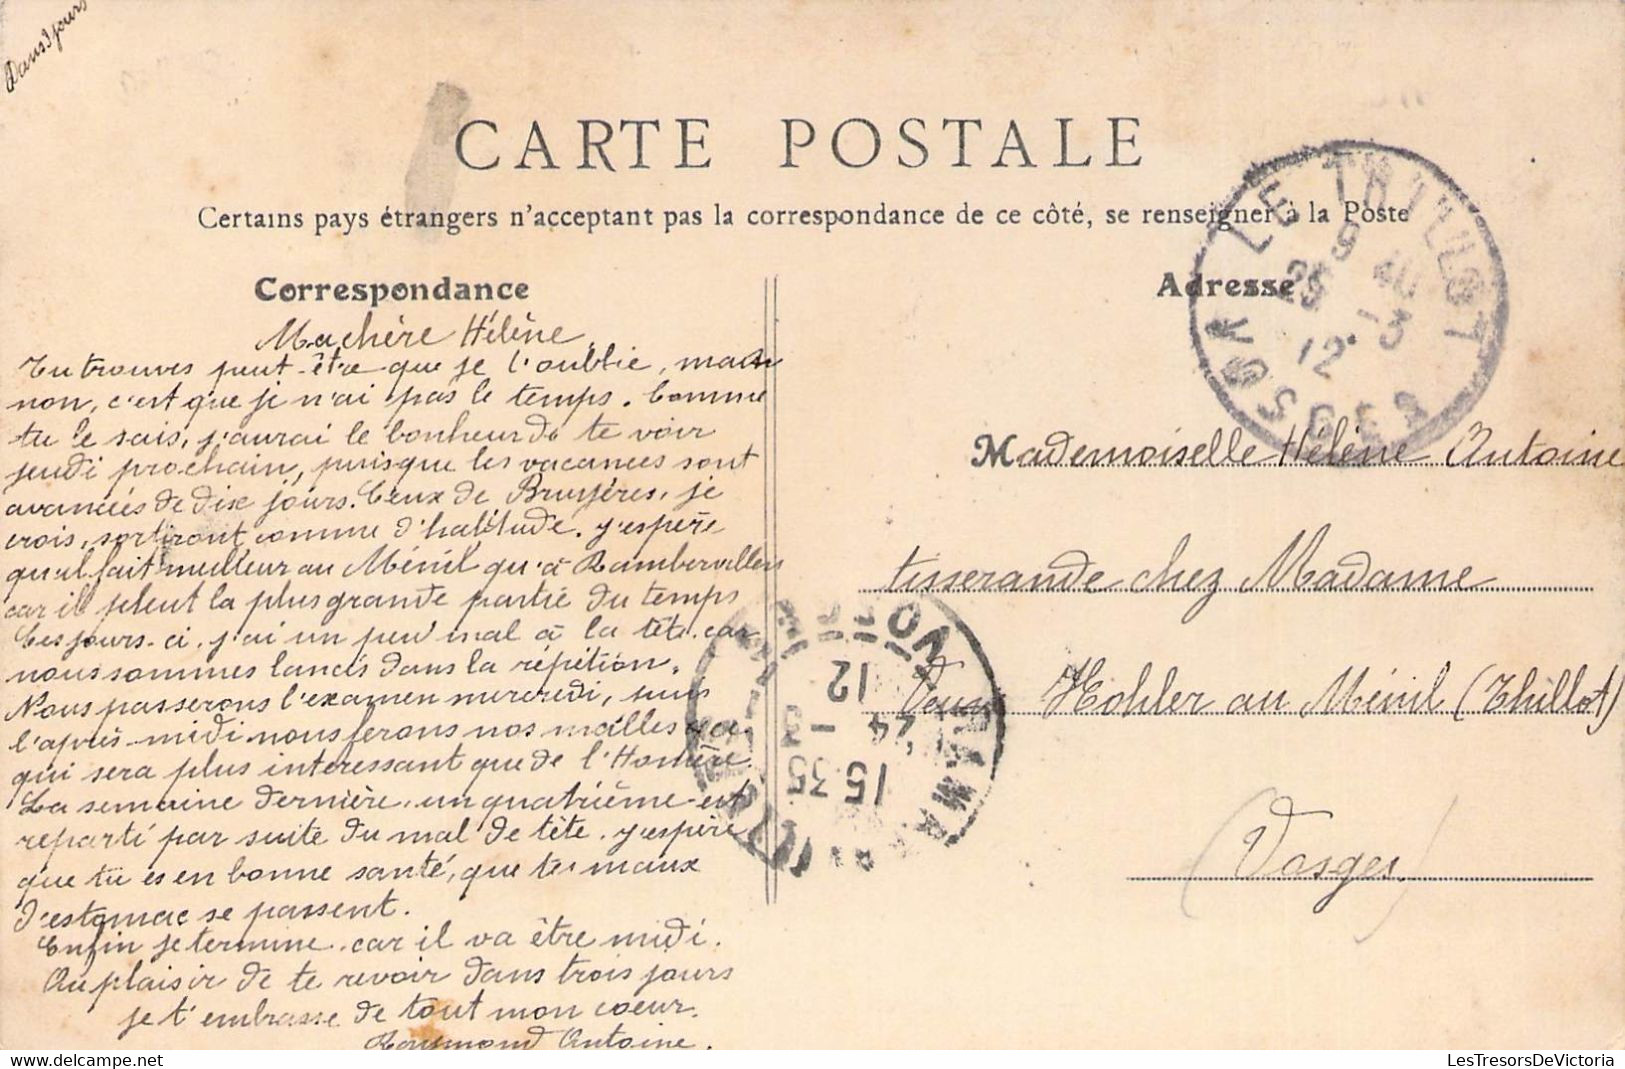 Dans 3 jours
CARTE POSTALE
Certains pays étrangers n'acceptent pas la correspondance de ce côté, se renseigner à la Poste
Correspondance
Ma chère Hélène.
Tu trouves peut-être que je t'oublie, mais
non, c'est que je n'ai pas le temps. Comme
tu le sais, j'aurai le bonheur de te voir
jeudi prochain, puisque les vacances sont
avancées de dix jours. Ceux de Bruyères, je
crois, sortiront comme d'habitude. J'espère
qu'il fait meilleur au Ménil qu'à Rambervillers
car il pleut la plus grande partie du temps
ces jours-ci. j'ai un peu mal à la tête car
nous sommes lancés dans la répition.
Nous passerons l'examen mercredi, puis
l'après-midi nous ferons nos malles ce
qui sera plus intéressant que de l'Homère.
La semaine dernière, un quatrième est
reparti par suite du mal de tête. J'espère
que tu es en bonne santé, que tes maux
d'estomac se passent.
Enfin je termine car il va être midi.
Au plaisir de te revoir dans trois jours
je t'embrasse de tout mon coeur.
Raymond Antoine.
Adresse
Mademoiselle Hélène Antoine
tisserande chez Madame
Veuve Kohler au Ménil (Thillot)
(Vosges)
LE THILLOT
9 40
25 -3
12
VOSGES
RAMBERVILLERS
15 35
24 -3
12
VOSGES
LesTresorsDeVictoria